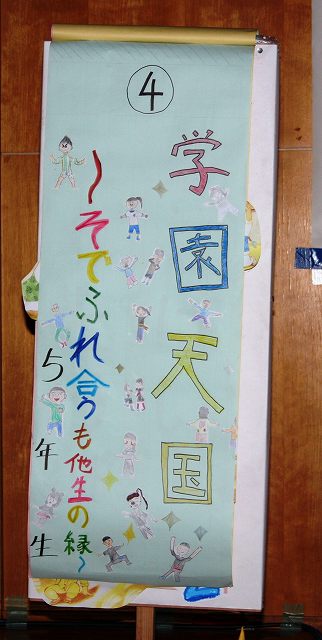 ④
学園天国
～そでふれ合うも他生の縁～
5年生